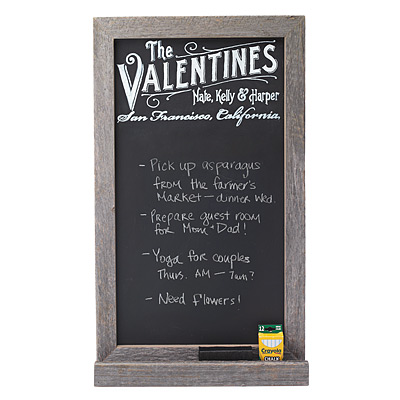 The
VALENTINES
Nate, Kelly & Harper
San Francisco, California.
- Pick up asparagus
from the farmer's
market — dinner Wed.
- Prepare guest room
for Mom + Dad!
- Yoga for couples
Thurs. AM — 7am?
- Need flowers!
12
Crayola
CHALK